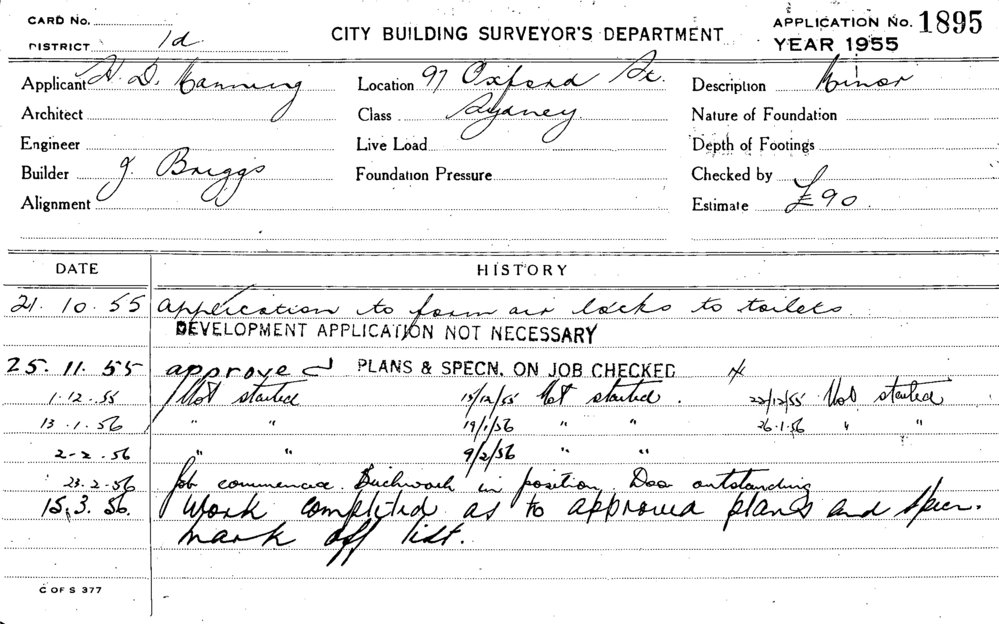 CARD No.
DISTRICT 1d
CITY BUILDING SURVEYOR'S DEPARTMENT
APPLICATION No. 1895
YEAR 1955
Applicant H. D. Manning Location 97 Oxford St. Description Minor
Architect Class Sydney Nature of Foundation
Engineer Live Load Depth of Footings
Builder J. Briggs Foundation Pressure Checked by
Alignment Estimate £90.
DATE HISTORY
21.10.55 Application to form air locks to toilets
DEVELOPMENT APPLICATION NOT NECESSARY
25.11.55 approved PLANS & SPECN. ON JOB CHECKED
1.12.55 Not started 15/12/55 Not started. 22/12/55 Not started
13.1.56 " " 19/1/56 " " 26.1.56 " "
2-2.56 " " 9/2/56 " "
23.2.56 Job commenced. Brickwork in position. Doo outstanding
15.3.56. Work completed as to approved plans and specn.
mark off list.
C OF S 377